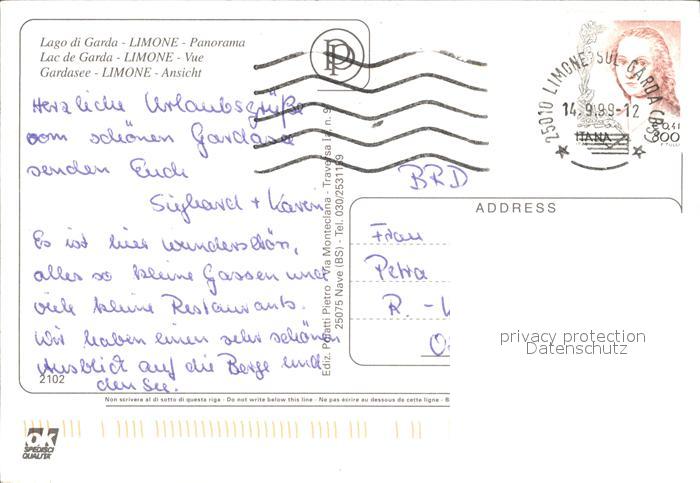 Lago di Garda - LIMONE - Panorama
Lac de Garda - LIMONE - Vue
Gardasee - LIMONE - Ansicht
PP
25010 LIMONE SUL GARDA (BS)
14.9.99-12
€ 0,41
ITALIA 800
Herzliche Urlaubsgrüße
vom schönen Gardasee
senden Euch
Sighard + Karin
Es ist hier wunderschön,
alles so kleine Gassen und
viele kleine Restaurants.
Wir haben einen sehr schönen
Ausblick auf die Berge und
den See.
2102
Ediz. Polatti Pietro - Via Monteclana - Traversa n. 9
25075 Nave (BS) - Tel. 030/2531189
BRD
ADDRESS
Frau
Petra
R. -
privacy protection
Datenschutz
Non scrivera al di sotto di questa riga - Do not write below this line - Ne pas écrire au dessous de cette ligne - B
ok
SPEDISCI
QUALITÀ